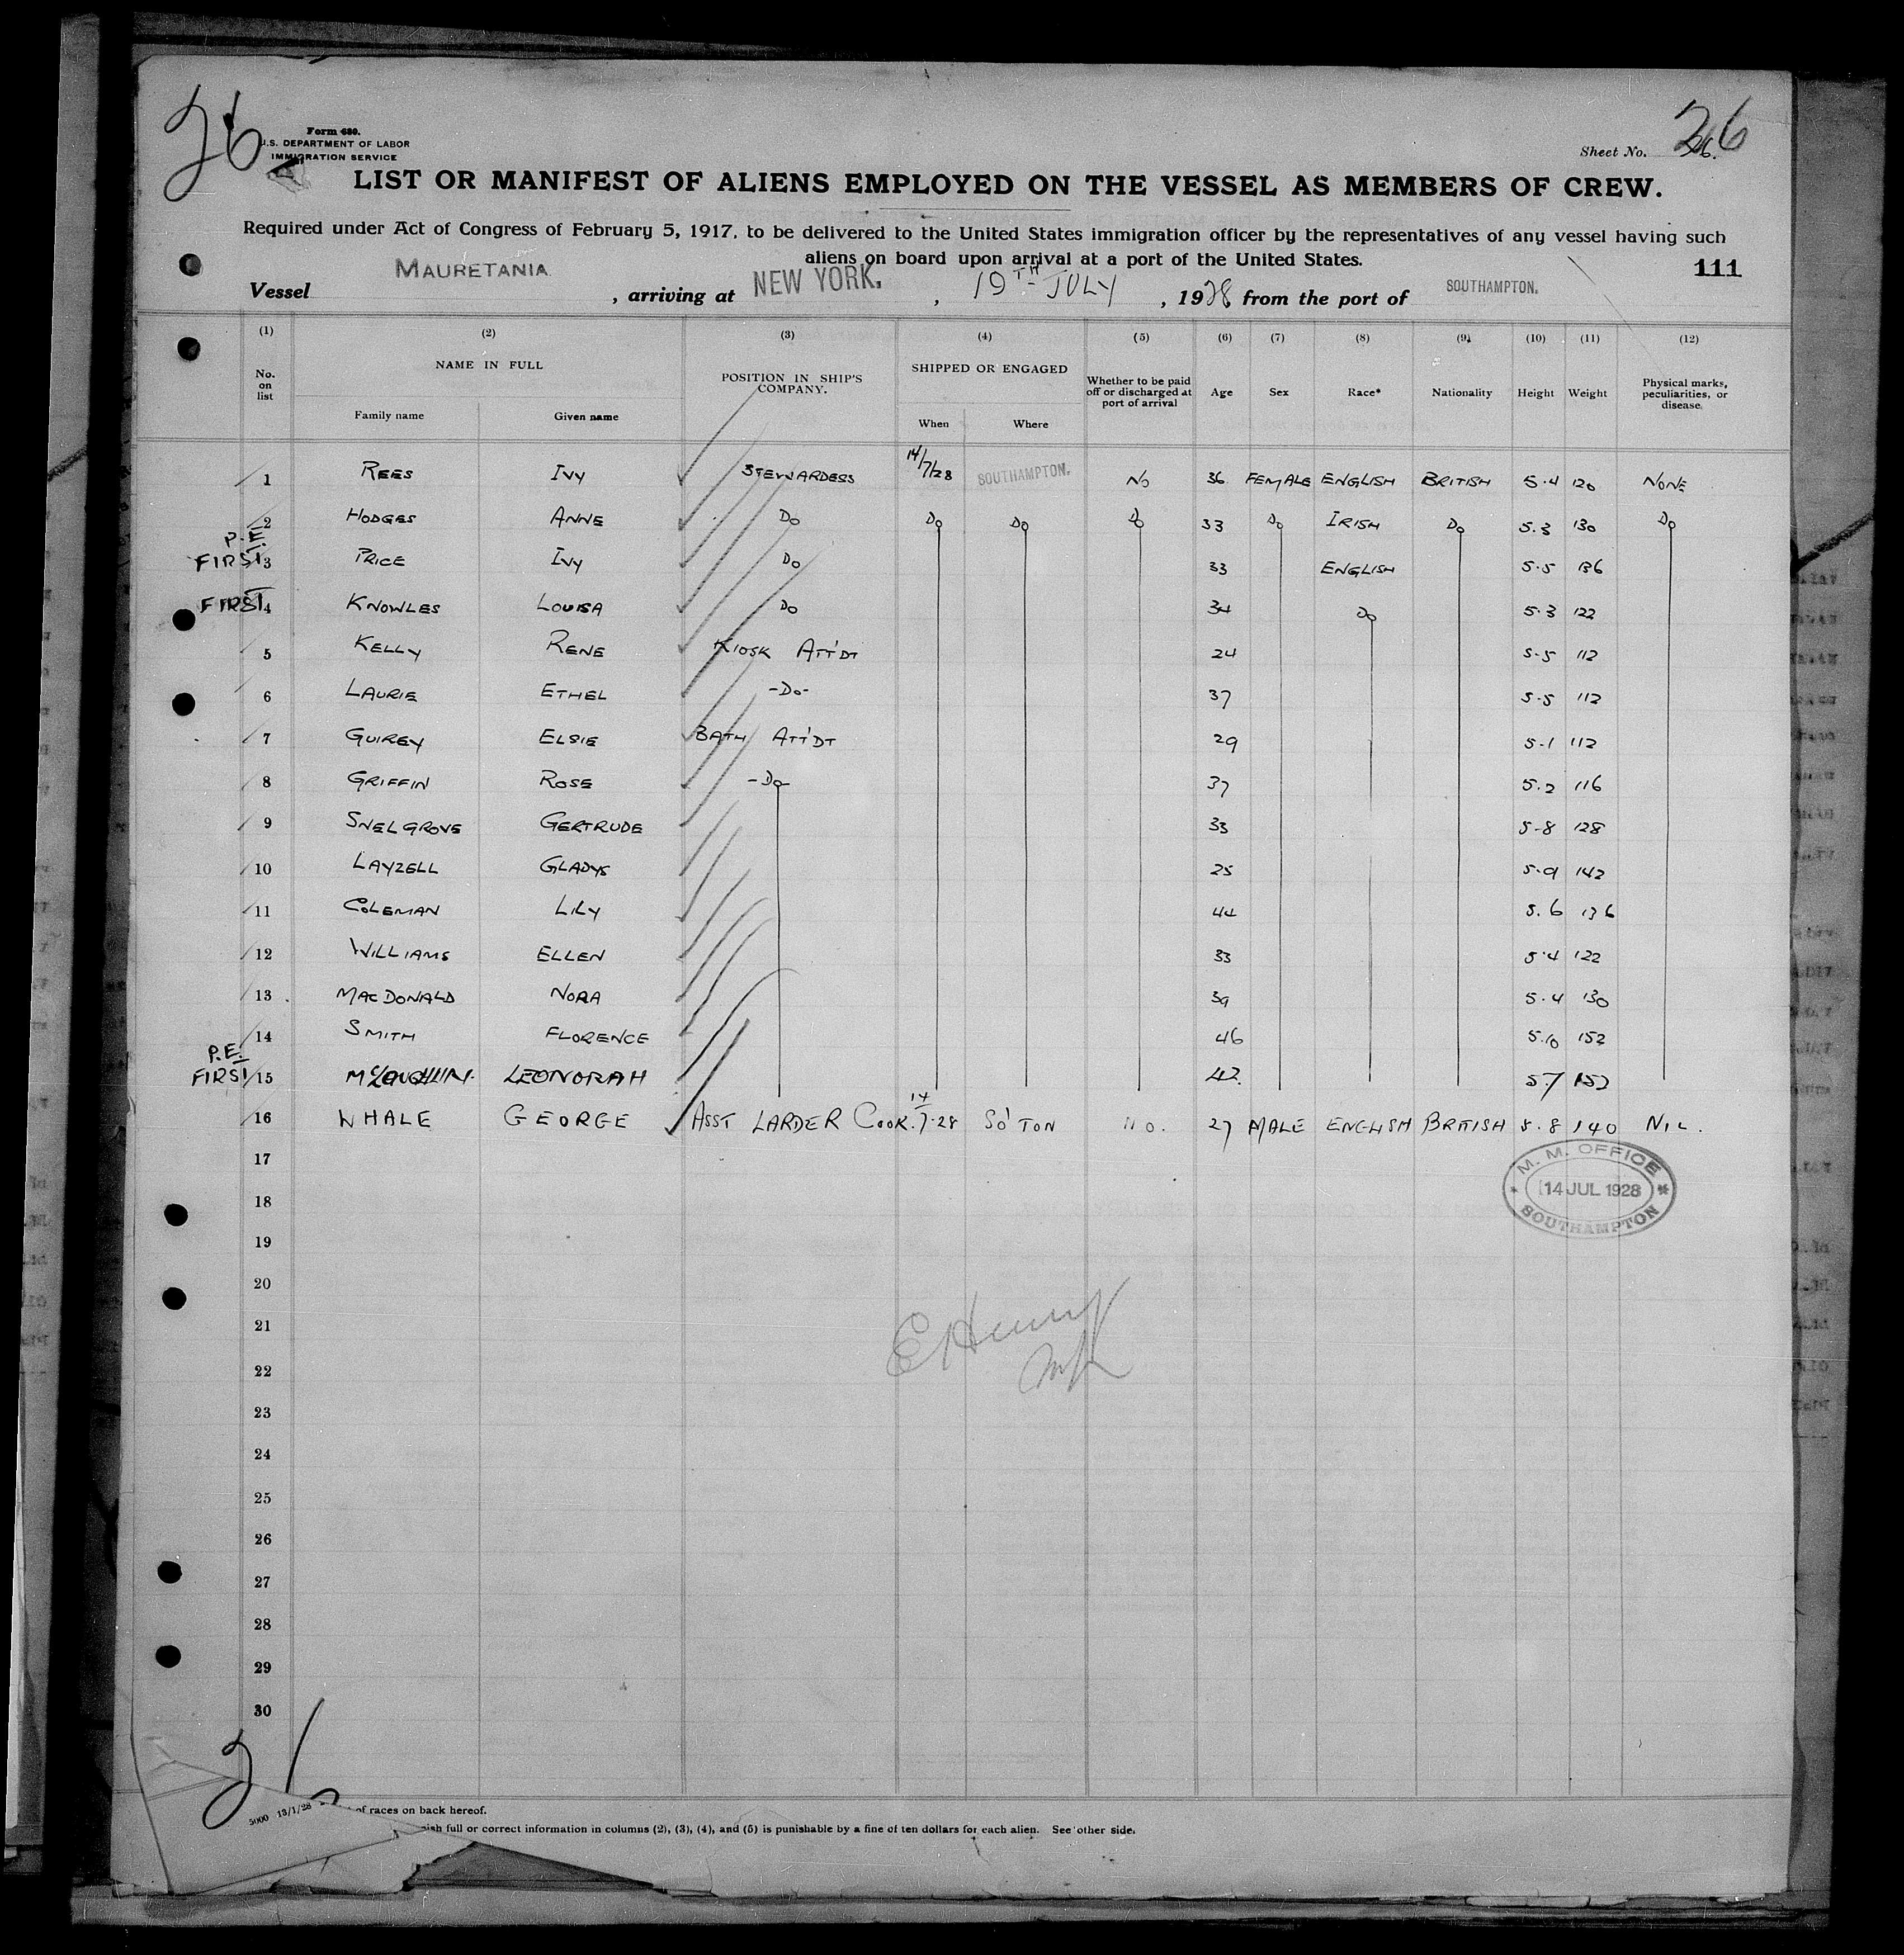 26
Form 680.
U.S. DEPARTMENT OF LABOR
IMMIGRATION SERVICE
Sheet No. 26
LIST OR MANIFEST OF ALIENS EMPLOYED ON THE VESSEL AS MEMBERS OF CREW.
Required under Act of Congress of February 5, 1917, to be delivered to the United States immigration officer by the representatives of any vessel having such
aliens on board upon arrival at a port of the United States.
111
Vessel MAURETANIA, arriving at NEW YORK., 19TH JULY, 1928 from the port of SOUTHAMPTON.
(1) (2) (3) (4) (5) (6) (7) (8) (9) (10) (11) (12)
No. on list NAME IN FULL POSITION IN SHIP'S COMPANY. SHIPPED OR ENGAGED Whether to be paid off or discharged at port of arrival Age Sex Race* Nationality Height Weight Physical marks, peculiarities, or disease
Family name Given name When Where
1 REES IVY STEWARDESS 14/7/28 SOUTHAMPTON. NO 36 FEMALE ENGLISH BRITISH 5.4 120 NONE
2 HODGES ANNE DO DO DO DO 33 DO IRISH DO 5.3 130 DO
P.E. FIRST 3 PRICE IVY DO 33 ENGLISH 5.5 136
FIRST 4 KNOWLES LOUISA DO 34 DO 5.3 122
5 KELLY RENE KIOSK ATT'DT 24 5-5 112
6 LAURIE ETHEL -DO- 37 5-5 112
7 GUIREY ELSIE BATH ATT'DT 29 5-1 112
8 GRIFFIN ROSE -DO- 37 5.2 116
9 SNELGROVE GERTRUDE 33 5-8 128
10 LAYZELL GLADYS 25 5.9 142
11 COLEMAN LILY 44 5.6 136
12 WILLIAMS ELLEN 33 5.4 122
13 MACDONALD NORA 39 5.4 130
14 SMITH FLORENCE 46 5.10 152
P.E. FIRST 15 McLOUGHLIN. LEONORAH 42. 5.7 152
16 WHALE GEORGE ASST LARDER COOK. 14/7.28 SO'TON NO. 27 MALE ENGLISH BRITISH 5.8 140 NIL.
17
M. M. OFFICE
14 JUL 1928
SOUTHAMPTON
18
19
20
21
22
23
24
25
26
27
28
29
30
21
5000 13/1/28 of races on back hereof.
full or correct information in columns (2), (3), (4), and (5) is punishable by a fine of ten dollars for each alien. See other side.